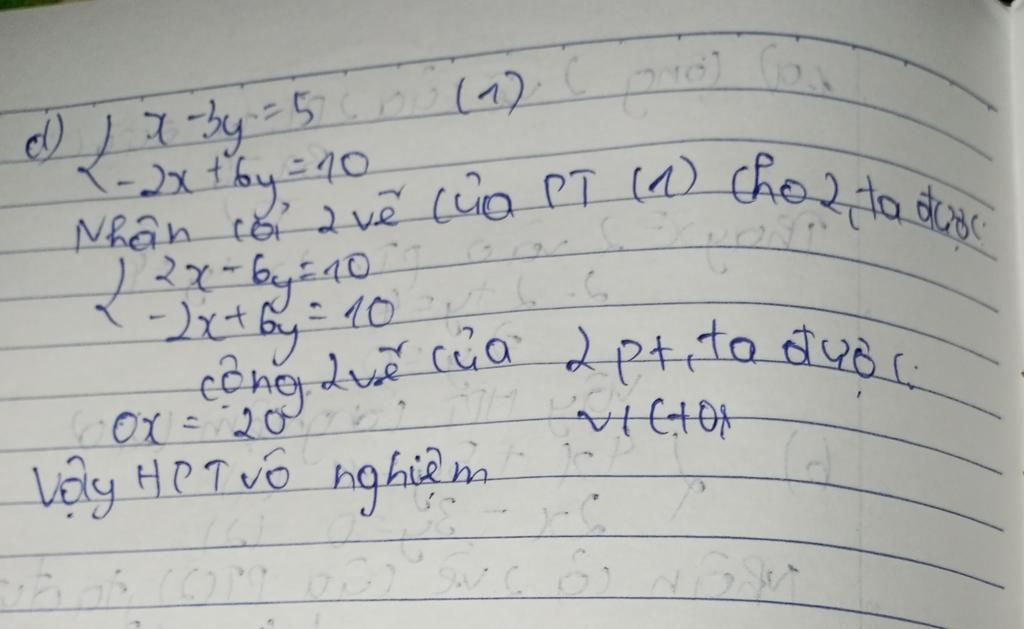 d) { x - 3y = 5 (1)
-2x + 6y = 10
Nhân cả 2 vế của PT (1) cho 2, ta được:
{ 2x - 6y = 10
-2x + 6y = 10
Cộng 2 vế của 2 pt, ta được:
0x = 20
Vậy HPT vô nghiệm